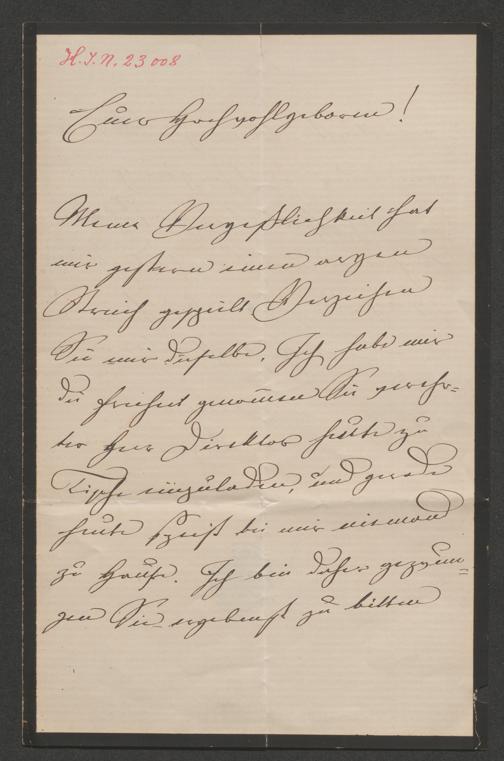 H.I.N. 23008
Euer Hochwohlgeboren!
Meine Vergeßlichkeit hat
mir gestern einen argen
Streich gespielt Verzeihen
Sie mir dieselbe. Ich habe mir
die Freiheit genommen Sie geehr=
ter Herr Direktor heute zu
Tische einzuladen, und gerade
heute speist bei mir niemand
zu Hause. Ich bin daher gezwun=
gen Sie ergebenst zu bitten